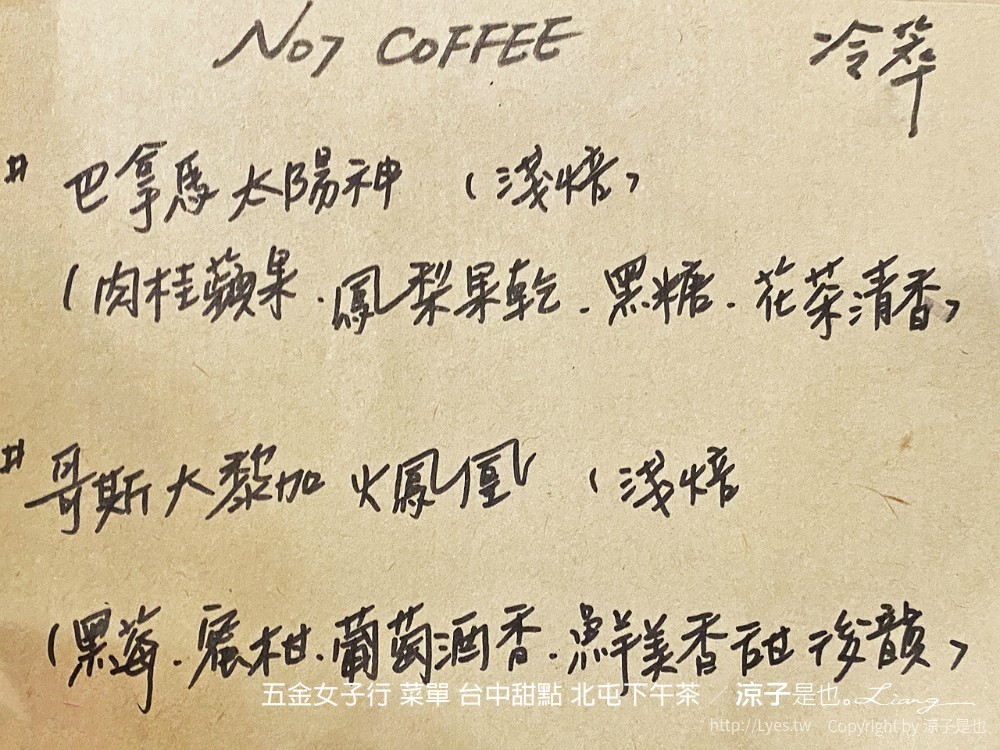 NO7 COFFEE 冷萃
# 巴拿馬 太陽神 (淺焙)
(肉桂蘋果.鳳梨果乾.黑糖.花茶清香)
# 哥斯大黎加 火鳳凰 (淺焙
(黑莓.蜜柑.葡萄酒香.鮮美香甜後韻)
五金女子行 菜單 台中甜點 北屯下午茶 / 涼子是也。Liang
http://Lyes.tw Copyright by 涼子是也